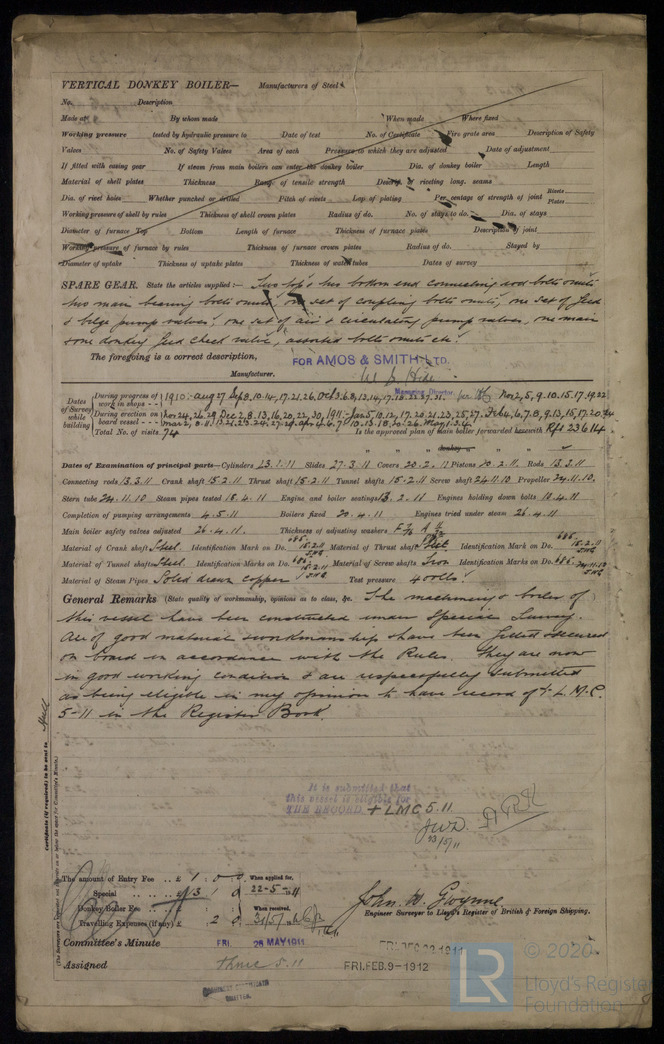 VERTICAL DONKEY BOILER— Manufacturers of Steel
No. Description
Made at By whom made When made Where fixed
Working pressure tested by hydraulic pressure to Date of test No. of Certificate Fire grate area Description of Safety
Valves No. of Safety Valves Area of each Pressure to which they are adjusted Date of adjustment
If fitted with easing gear If steam from main boilers can enter the donkey boiler Dia. of donkey boiler Length
Material of shell plates Thickness Range of tensile strength Descrip. of riveting long. seams
Dia. of rivet holes Whether punched or drilled Pitch of rivets Lap of plating Per centage of strength of joint Rivets Plates
Working pressure of shell by rules Thickness of shell crown plates Radius of do. No. of stays to do. Dia. of stays
Diameter of furnace Top Bottom Length of furnace Thickness of furnace plates Description of joint
Working pressure of furnace by rules Thickness of furnace crown plates Radius of do. Stayed by
Diameter of uptake Thickness of uptake plates Thickness of water tubes Dates of survey
SPARE GEAR. State the articles supplied:— Two top & two bottom end connecting rod bolts & nuts
two main bearing bolts & nuts, one set of coupling bolts & nuts, one set of feed
& bilge pump valves, one set of air & circulating pump valves, one main
& one donkey feed check valve, assorted bolts & nuts etc.
The foregoing is a correct description,
FOR AMOS & SMITH LTD.
Manufacturer.
Managing Director
Dates of Survey while building
During progress of work in shops - - 1910:- Aug 27 Sep 8.10.14.17.21.26. Oct 3.6.8.
Nov 2,5,9.10.15.17.19.22
During erection on board vessel - - - Nov 24.26.29 Dec 2.8.13.16.20.22.30, 1911:- Jan 5.10.12.17.20.21.23.25.27. Feb 4.6.7.8.9.13.15.17.20.24
Total No. of visits 74 Is the approved plan of main boiler forwarded herewith Rfs 23614
" " " donkey " " "
Dates of Examination of principal parts—Cylinders 23.1.11 Slides 27.3.11 Covers 20.2.11 Pistons 20.2.11. Rods 13.3.11
Connecting rods 13.3.11 Crank shaft 15.2.11 Thrust shaft 15.2.11 Tunnel shafts 15.2.11 Screw shaft 24.11.10 Propeller 24.11.10.
Stern tube 24.11.10 Steam pipes tested 18.4.11 Engine and boiler seatings 13.2.11 Engines holding down bolts 11.4.11
Completion of pumping arrangements 4.5.11 Boilers fixed 20.4.11 Engines tried under steam 26.4.11
Main boiler safety valves adjusted 26.4.11. Thickness of adjusting washers
Material of Crank shaft Steel Identification Mark on Do. 685 15.2.11 Material of Thrust shaft Steel Identification Mark on Do. 685 15.2.11
Material of Tunnel shafts Steel Identification Marks on Do. 685 15.2.11 Material of Screw shafts Iron Identification Marks on Do. 685 24.11.10
Material of Steam Pipes Solid drawn copper Test pressure 400 lbs
General Remarks (State quality of workmanship, opinions as to class, &c. The machinery & boiler of
this vessel have been constructed under Special Survey.
Are of good material & workmanship & have been fitted & secured
on board in accordance with the Rules. They are now
in good working condition & are respectfully submitted
as being eligible in my opinion to have record of + L.M.C.
5-11 in the Register Book.
Certificate (if required) to be sent to Hull
It is submitted that
this vessel is eligible for
THE RECORD + LMC 5.11
JWD
23/5/11
The amount of Entry Fee .. £ 1 : 0 : 0 When applied for,
Special .. .. £ 13 : 1 : 0 22-5-1911
Donkey Boiler Fee .. .. £ When received,
Travelling Expenses (if any) £ : 2 : 0 31/5/11
John W Gwynne
Engineer Surveyor to Lloyd's Register of British & Foreign Shipping.
Committee's Minute FRI. 26 MAY 1911 FRI. DEC 22 1911
Assigned + LMC 5.11 FRI. FEB. 9-1912
LR © 2020
Lloyd's Register
Foundation